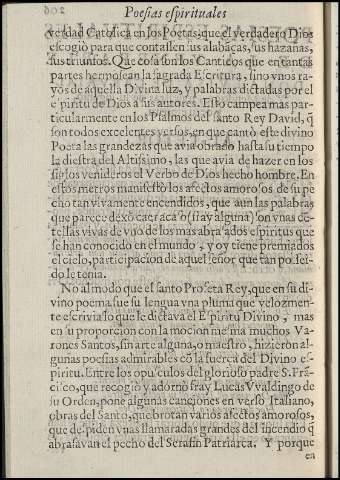 Poesias espirituales
verdad Catolica en los Poetas, que el verdadero Dios
escogiò para que contassen sus alabāças, sus hazañas,
sus triunfos. Que cosa son los Canticos que en tantas
partes hermosean la sagrada Escritura, sino vnos ra-
yos de aquella Divina luz, y palabras dictadas por el
espiritu de Dios a sus autores. Esto campea mas par-
ticularmente en los Psalmos del santo Rey David, q̃
son todos excelentes versos, en que cantò este divino
Poeta las grandezas que avia obrado hasta su tiempo
la diestra del Altissimo, las que avia de hazer en los
siglos venideros el Verbo de Dios hecho hombre. En
estos metros manifestò los afectos amorosos de su pe
cho tan vivamente encendidos, que aun las palabras
que parece dexò caer acà (si ay alguna) son vnas cē-
tellas vivas de vno de los mas abrasados espiritus que
se han conocido en el mundo, y oy tiene premiados
el cielo, participacion de aquel señor que tan possei-
do le tenia.
No al modo que el santo Profeta Rey, que en su di-
vino poema fue su lengua vna pluma que velozmen-
te escrivia lo que le dictava el Espiritu Divino, mas
en su proporcion con la mocion mesma muchos Va-
rones Santos, sin arte alguna, o maestro, hizieron al-
gunas poesias admirables cō la fuerça del Divino es-
piritu. Entre los opusculos del glorioso padre S. Frā-
cisco, que recogiò y adornò fray Lucas Vvaldingo de
su Orden, pone algunas canciones en verso Italiano,
obras del Santo, que brotan varios afectos amorosos,
que despiden vnas llamaradas grandes del incendio q̃
abrasavan el pecho del Serafin Patriarca. Y porque
en